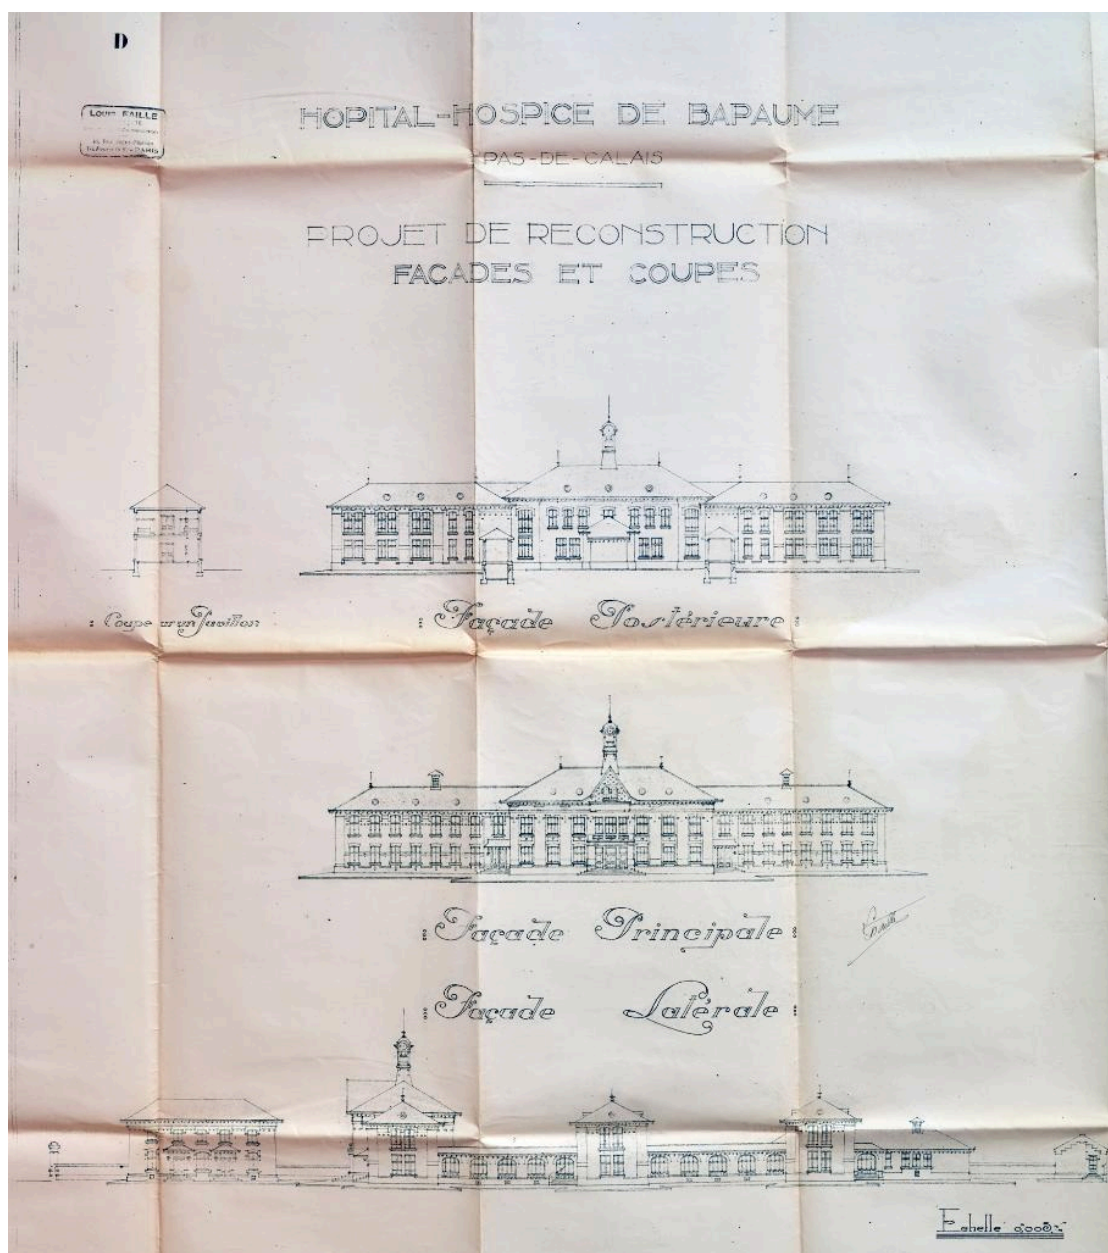 D
LOUIS FAILLE
PARIS
HOPITAL-HOSPICE DE BAPAUME
PAS-DE-CALAIS
PROJET DE RECONSTRUCTION
FAÇADES ET COUPES
: Coupe Pavillon
: Façade Postérieure :
: Façade Principale :
: Façade Latérale :
Echelle